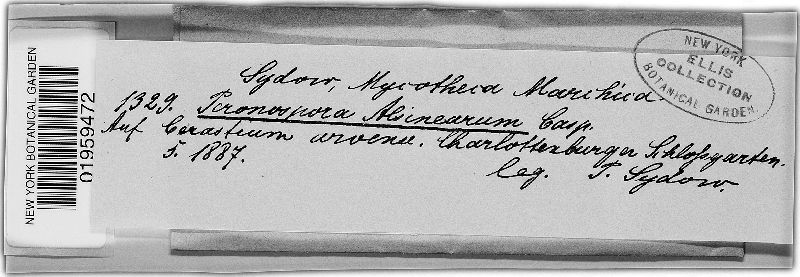 NEW YORK BOTANICAL GARDEN
01959472
NEW YORK
ELLIS
COLLECTION
BOTANICAL GARDEN.
Sydow, Mycotheca Marchica.
1329. Peronospora Alsinearum Casp.
Auf Cerastium arvense. Charlottenburger Schlossgarten.
5. 1887.
leg. P. Sydow.